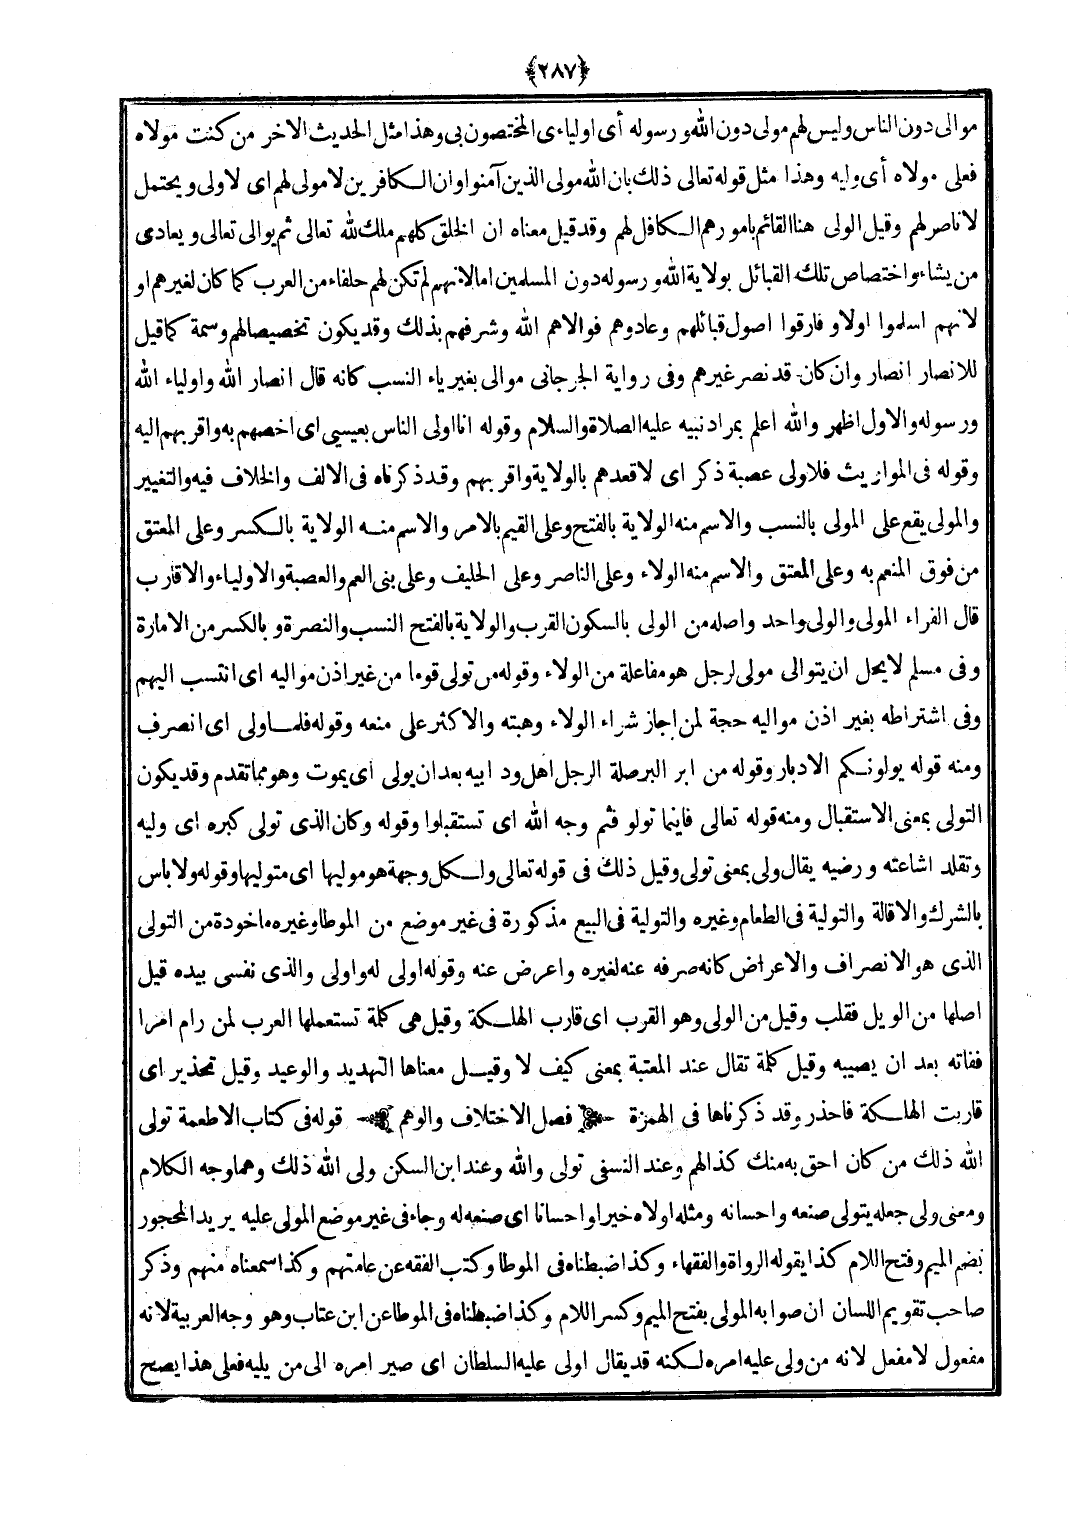 ﴿٢٨٧﴾
موالى دون الناس وليس لهم مولى دون الله ورسوله أى اوليائى المختصون بى وهذا مثل الحديث الاخر من كنت مولاه
فعلى مولاه أى وليه وهذا مثل قوله تعالى ذلك بان الله مولى الذين آمنوا وان الكافرين لا مولى لهم اى لا ولى ويحتمل
لا ناصر لهم وقيل الولى هنا القائم بامورهم الكافل لهم وقد قيل معناه ان الخلق كلهم ملك لله تعالى ثم يوالى تعالى ويعادى
من يشاء واختصاص تلك القبائل بولاية الله ورسوله دون المسلمين اما لانهم لم تكن لهم حلفاء من العرب كما كان لغيرهم او
لانهم اسلموا اولا وفارقوا اصول قبائلهم وعادوهم فوالاهم الله وشرفهم بذلك وقد يكون تخصيصا لهم وسمة كما قيل
للانصار انصار وان كان قد نصر غيرهم وفى رواية الجرجانى موالى بغير ياء النسب كانه قال انصار الله واولياء الله
ورسوله والاول اظهر والله اعلم بمراد نبيه عليه الصلاة والسلام وقوله انا اولى الناس بعيسى اى اخصهم به واقربهم اليه
وقوله فى المواريث فلاولى عصبة ذكر اى لاقعدهم بالولاية واقربهم وقد ذكرناه فى الالف والخلاف فيه والتغيير
والمولى يقع على المولى بالنسب والاسم منه الولاية بالفتح وعلى القيم بالامر والاسم منه الولاية بالكسر وعلى المعتق
من فوق المنعم به وعلى المعتق والاسم منه الولاء وعلى الناصر وعلى الحليف وعلى بنى العم والعصبة والاولياء والاقارب
قال الفراء المولى والولى واحد واصله من الولى بالسكون القرب والولاية بالفتح النسب والنصرة وبالكسر من الامارة
وفى مسلم لا يحل ان يتوالى مولى لرجل هو مفاعلة من الولاء وقوله من تولى قوما من غير اذن مواليه اى انتسب اليهم
وفى اشتراطه بغير اذن مواليه حجة لمن اجاز شراء الولاء وهبته والاكثر على منعه وقوله فلما ولى اى انصرف
ومنه قوله يولونكم الادبار وقوله من ابر البر صلة الرجل اهل ود ابيه بعد ان يولى اى يموت وهو مما تقدم وقد يكون
التولى بمعنى الاستقبال ومنه قوله تعالى فاينما تولو فثم وجه الله اى تستقبلوا وقوله وكان الذى تولى كبره اى وليه
وتقلد اشاعته ورضيه يقال ولى بمعنى تولى وقيل ذلك فى قوله تعالى ولكل وجهة هو موليها اى متوليها وقوله ولا باس
بالشرك والاقالة والتولية فى الطعام وغيره والتولية فى البيع مذكورة فى غير موضع من الموطا وغيره ماخودة من التولى
الذى هو الانصراف والاعراض كانه صرفه عنه لغيره واعرض عنه وقوله اولى له واولى والذى نفسى بيده قيل
اصلها من الويل فقلب وقيل من الولى وهو القرب اى قارب الهلكة وقيل هى كلمة تستعملها العرب لمن رام امرا
ففاته بعد ان يصيبه وقيل كلمة تقال عند المعتبة بمعنى كيف لا وقيل معناها التهديد والوعيد وقيل تحذير اى
قاربت الهلكة فاحذر وقد ذكرناها فى الهمزة فصل الاختلاف والوهم قوله فى كتاب الاطعمة تولى
الله ذلك من كان احق به منك كذا لهم وعند النسفى تولى والله وعند ابن السكن ولى الله ذلك وهما وجه الكلام
ومعنى ولى جعله يتولى صنعه واحسانه ومثله اولاه خيرا واحسانا اى صنعه له وجاء فى غير موضع المولى عليه يريد المحجور
بضم الميم وفتح اللام كذا يقوله الرواة والفقهاء وكذا ضبطناه فى الموطا وكتب الفقه عن عامتهم وكذا سمعناه منهم وذكر
صاحب تقويم اللسان ان صوابه المولى بفتح الميم وكسر اللام وكذا ضبطناه فى الموطا عن ابن عتاب وهو وجه العربية لانه
مفعول لا مفعل لانه من ولى عليه امره لكنه قد يقال اولى عليه السلطان اى صير امره الى من يليه فعلى هذا يصح